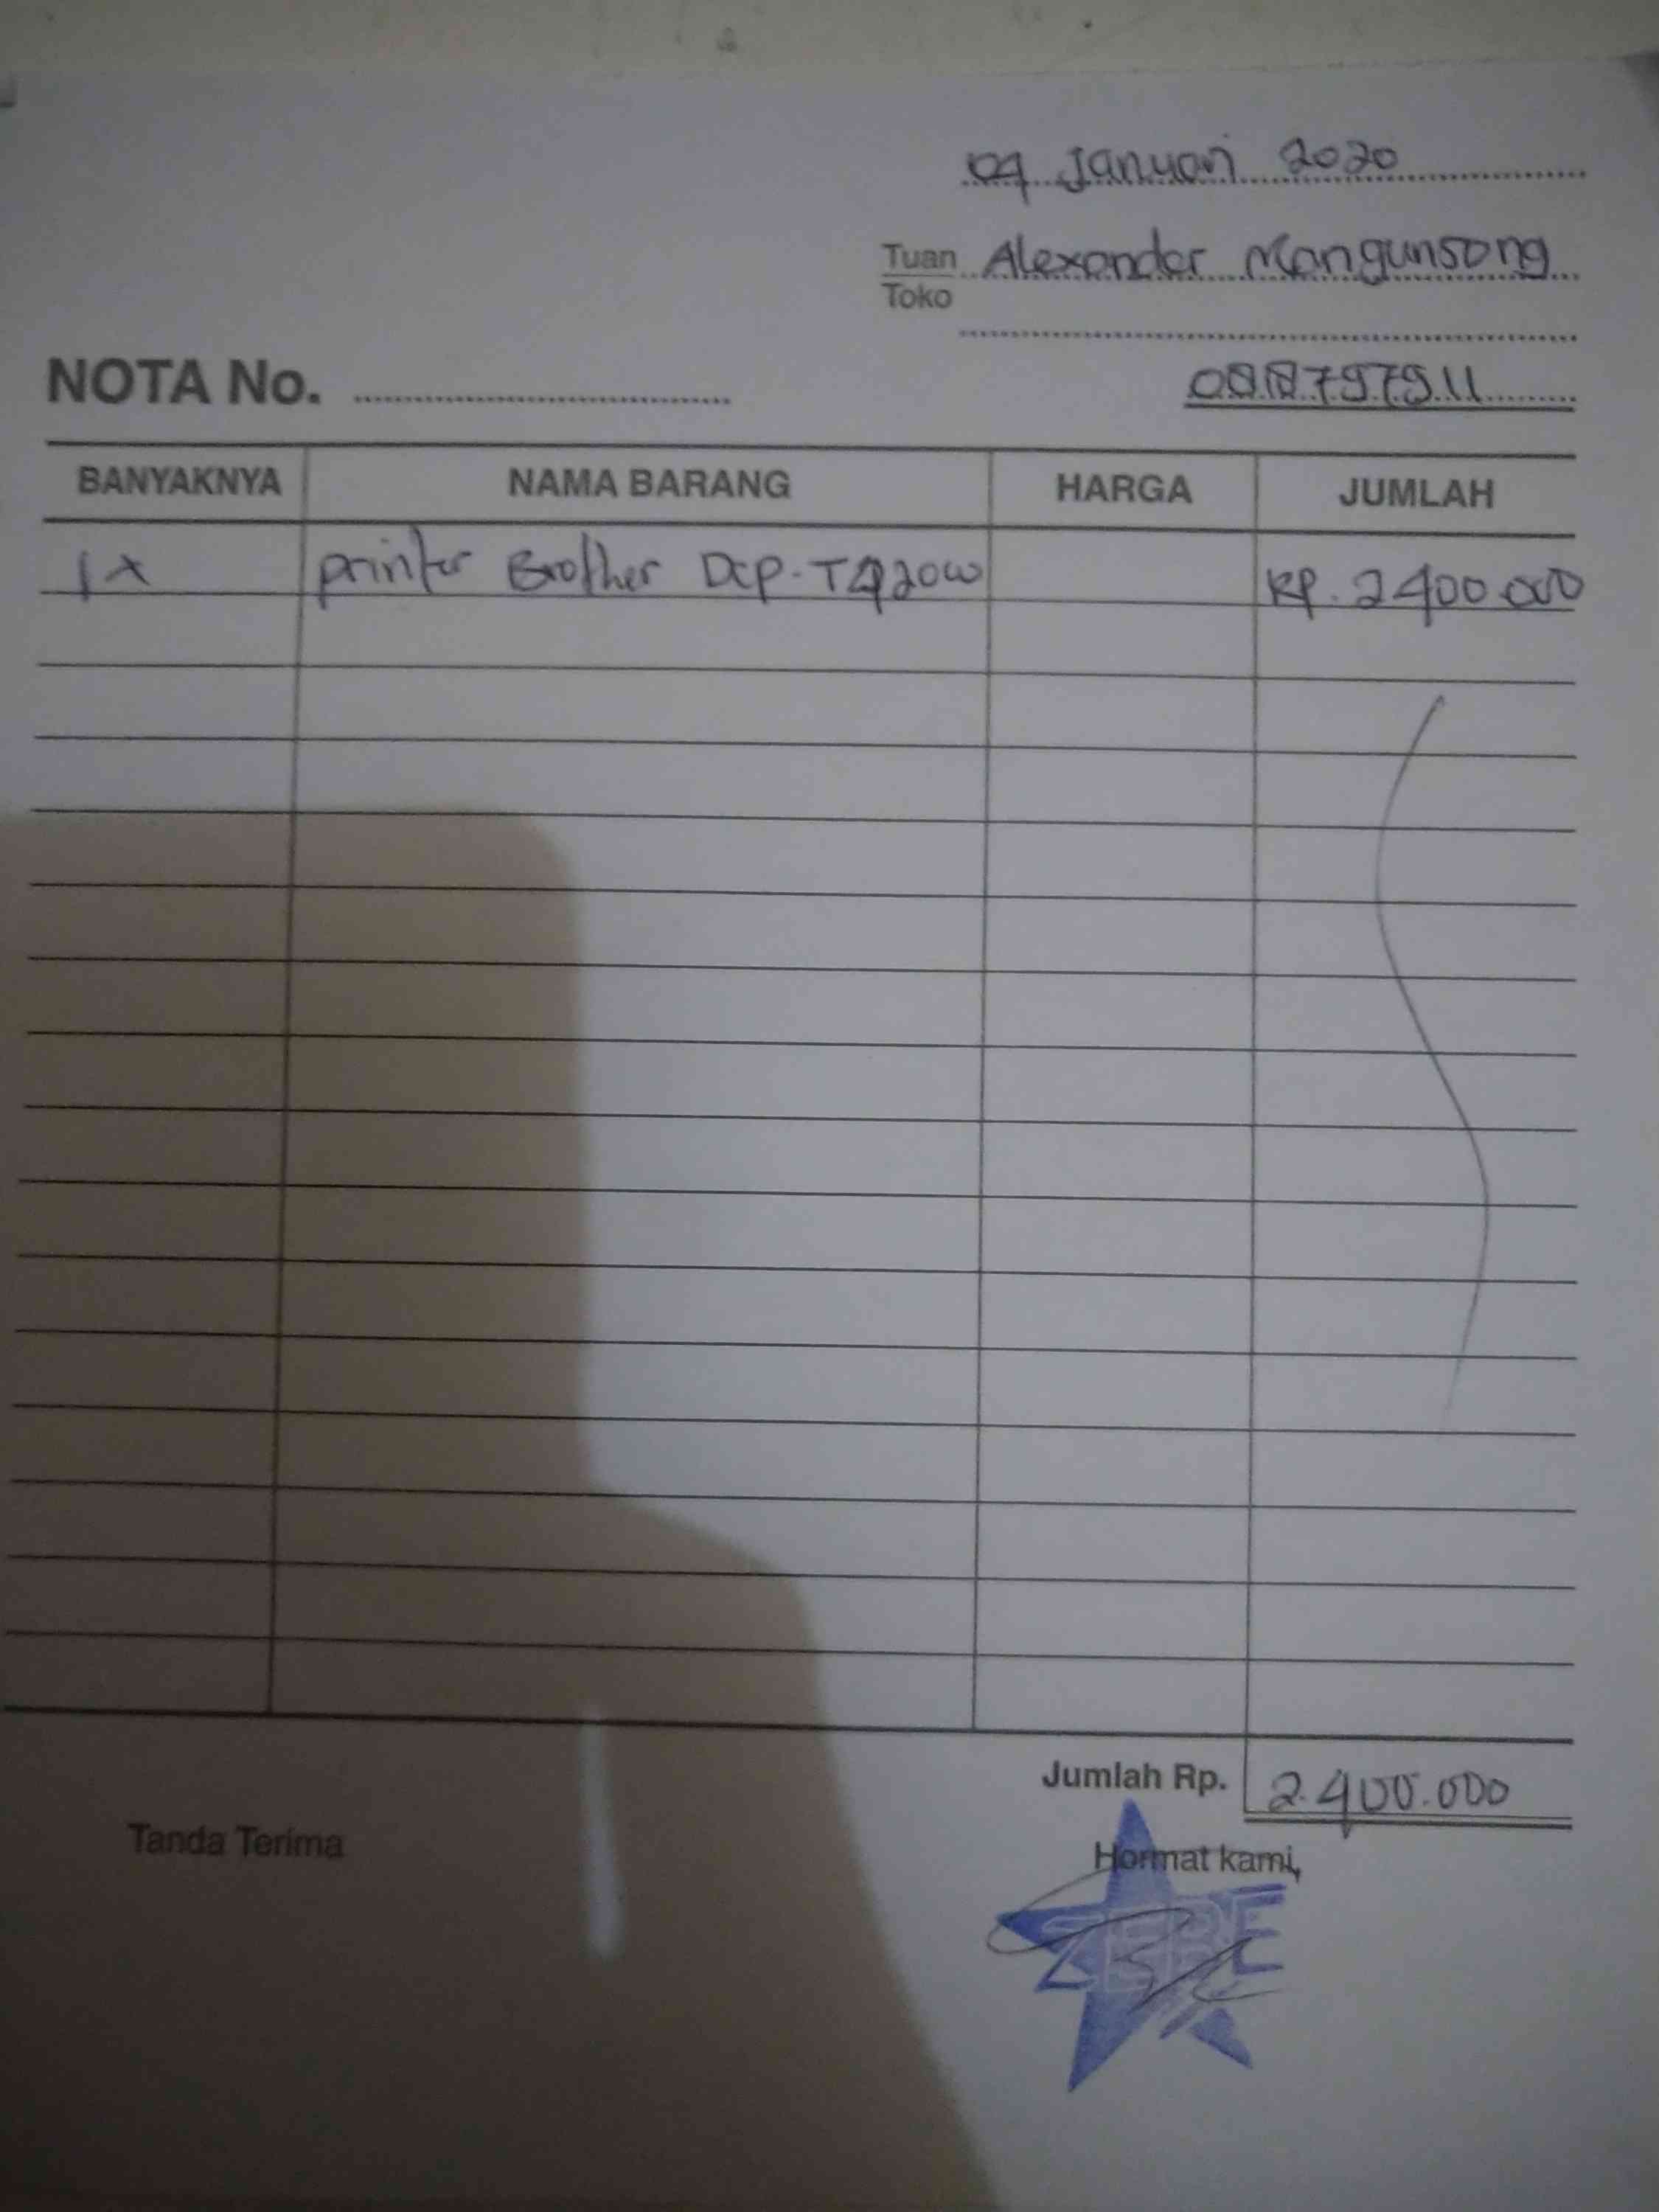 09 Januari 2020
Tuan Alexander Mangunsong
Toko
NOTA No.
BANYAKNYA NAMA BARANG HARGA JUMLAH
1x printer Brother Dcp-T420w Rp. 2400.000
Jumlah Rp. 2.400.000
Tanda Terima Hormat kami,